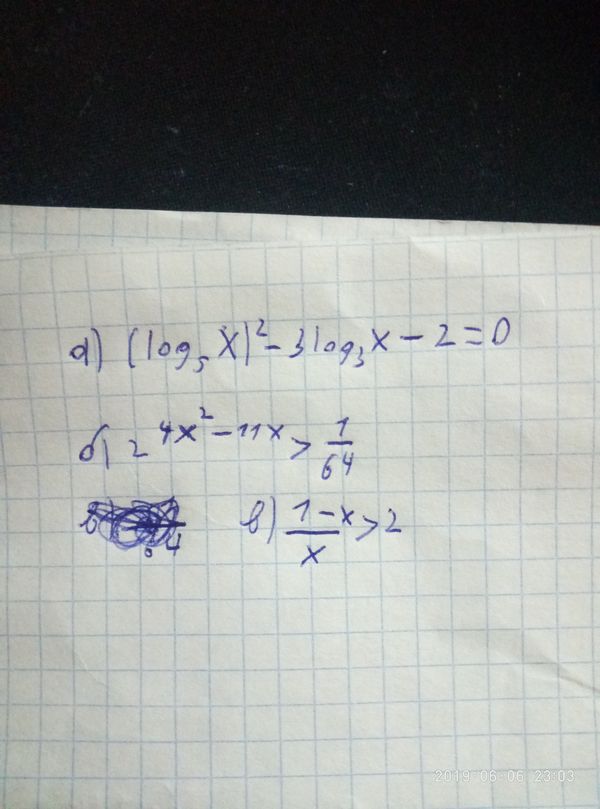 а) (log₅ x)² - 3 log₃ x - 2 = 0
б) 2^(4x² - 11x) > 1/64
в) (1 - x)/x > 2
2019 06 06 23:03